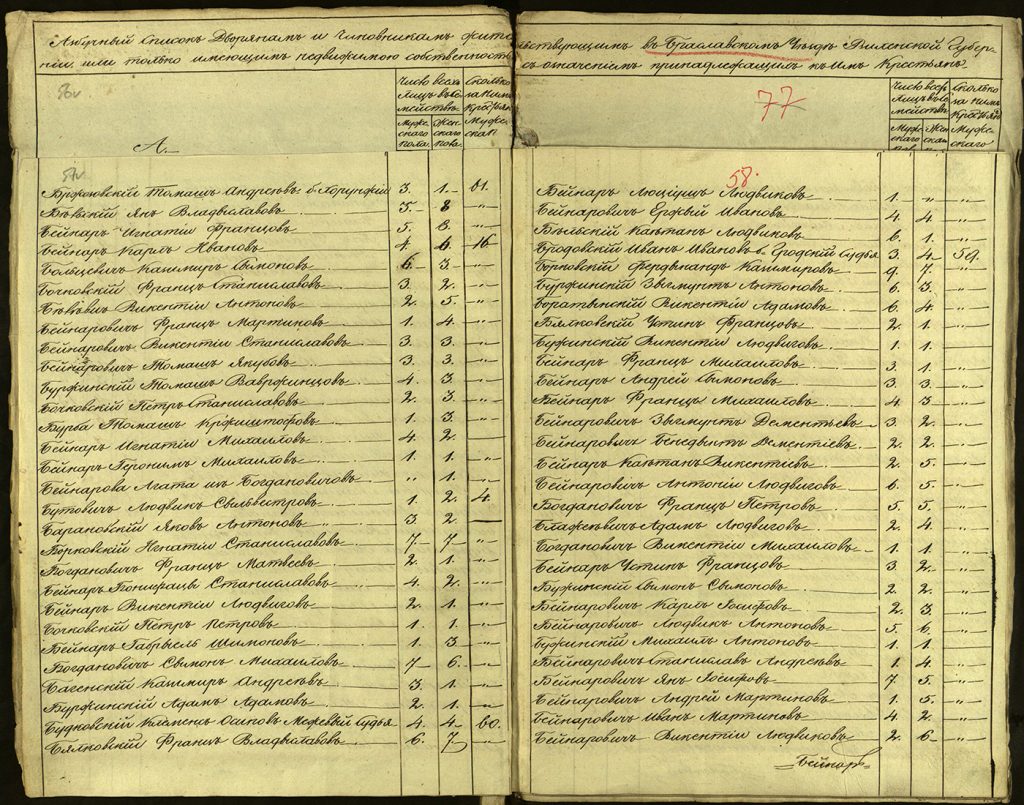 Азбучный Списокъ Дворянамъ и Чиновникамъ жительствующимъ въ Браславскомъ Уѣздѣ Виленской Губер-
ніи или только имеющимъ недвижимою собственность съ означеніемъ принадлежащихъ къ имъ Крестьянъ.
56v
77
Число всехъ Лицъ въ Семействѣ.
Сколько за ними Крестьянъ
Мужескаго пола.
Женскаго пола.
Мужескаго пол.
Число всехъ Лицъ въ Семействѣ.
Сколько за ними Крестьянъ
Мужескаго
Женска
Мужескаго
А.
57v
Бржозовскій Томашъ Андреевъ б. Хорунжій 3. 1. 61.
Бѣвскій Янъ Владыславовъ 5. 8 "
Бейнаръ Игнатій Францовъ 5. 6. "
Бейнаръ Карлъ Ивановъ 4. 6. 16
Больцевичъ Казимиръ Сымоновъ 6. 3. "
Бочковскій Францъ Станиславовъ 3. 2. "
Викентій Антоновъ 2. 5. "
Бейнаровичъ Францъ Мартиновъ 1. 4. "
Бейнаровичъ Викентій Станиславовъ 3. 3. "
Бейнаровичъ Томашъ Якубовъ 3. 3. "
Буржинскій Томашъ Вавржинцовъ 4. 3. "
Бочковскій Петръ Станиславовъ 2. 3. "
Бурба Томашъ Кржиштофовъ 1. 3. "
Бейнаръ Игнатій Михаиловъ 4. 2. "
Бейнаръ Геронимъ Михаиловъ 1. 1. "
Бейнарова Агата изъ Богдановичовъ " 1. "
Бутовичъ Людвикъ Сыльвестровъ 1. 2. 4.
Барановскій Яковъ Антоновъ 3. 2 —
Борковскій Игнатій Станиславовъ 7 7 "
Богдановичъ Францъ Матвеевъ 2. 1. "
Бейнаръ Бонифацы Станиславовъ 4. 2. "
Бейнаръ Викентій Людвиговъ 2. 1. "
Бочковскій Петръ Петровъ 1. 1. "
Бейнаръ Габрыель Шимоновъ 1. 3 "
Богдановичъ Сымонъ Михаиловъ 7 6. "
Багенскій Казимиръ Андреевъ 3. 1. "
Буржинскій Адамъ Адамовъ 2. 1. "
Будковскій Клеменсъ Осиповъ Межевый Судья 4. 4 60.
Бялковскій Францъ Владыславовъ 6. 7 "
58.
Бейнаръ Люціянъ Людвиковъ 1. " "
Бейнаровичъ Ержый Ивановъ 4. 4. "
Каетанъ Людвиковъ 6. 1. "
Бродовскій Иванъ Ивановъ б. Гродскій Судья 3. 4 59.
Борковскій Фердынандъ Казимировъ 9. 7. "
Буржинскій Зыгмунтъ Антоновъ 6. 3. "
Боратынскій Викентій Адамовъ 6. 4. "
Бялковскій Устинъ Францовъ 2. 1. "
Бужинскій Викентій Людвиговъ 1. 1. "
Бейнаръ Францъ Михаиловъ 3. 1 "
Бейнаръ Андрей Сымоновъ 3. 3. "
Бейнаръ Францъ Михаиловъ 4. 3 "
Бейнаровичъ Зыгмунтъ Дементьевъ 3. 2. "
Бейнаровичъ Бенедыктъ Дементіевъ 2. 2. "
Бейнаръ Каетанъ Викентіевъ 2. 5. "
Бейнаровичъ Антоній Людвиговъ 6. 5. "
Богдановичъ Францъ Петровъ 5. 5. "
Блажеевичъ Адамъ Людвиговъ 2. 4. "
Богдановичъ Викентій Михаиловъ 1. 1. "
Бейнаръ Устинъ Францовъ 3. 2. "
Бужинскій Сымонъ Сымоновъ 2. 2. "
Бейнаровичъ Карлъ Іосифовъ 2. 3. "
Бейнаровичъ Людвикъ Антоновъ 5. 6. "
Бужинскій Михаилъ Антоновъ 1. 1. "
Бейнаровичъ Станиславъ Андреевъ 1. 4. "
Бейнаровичъ Янъ Іосифовъ 7. 5. "
Бейнаровичъ Андрей Мартиновъ 1. 5. "
Бейнаровичъ Иванъ Мартиновъ 4. 2. "
Бейнаровичъ Викентій Людвиковъ 2. 6 "
Бейнаръ